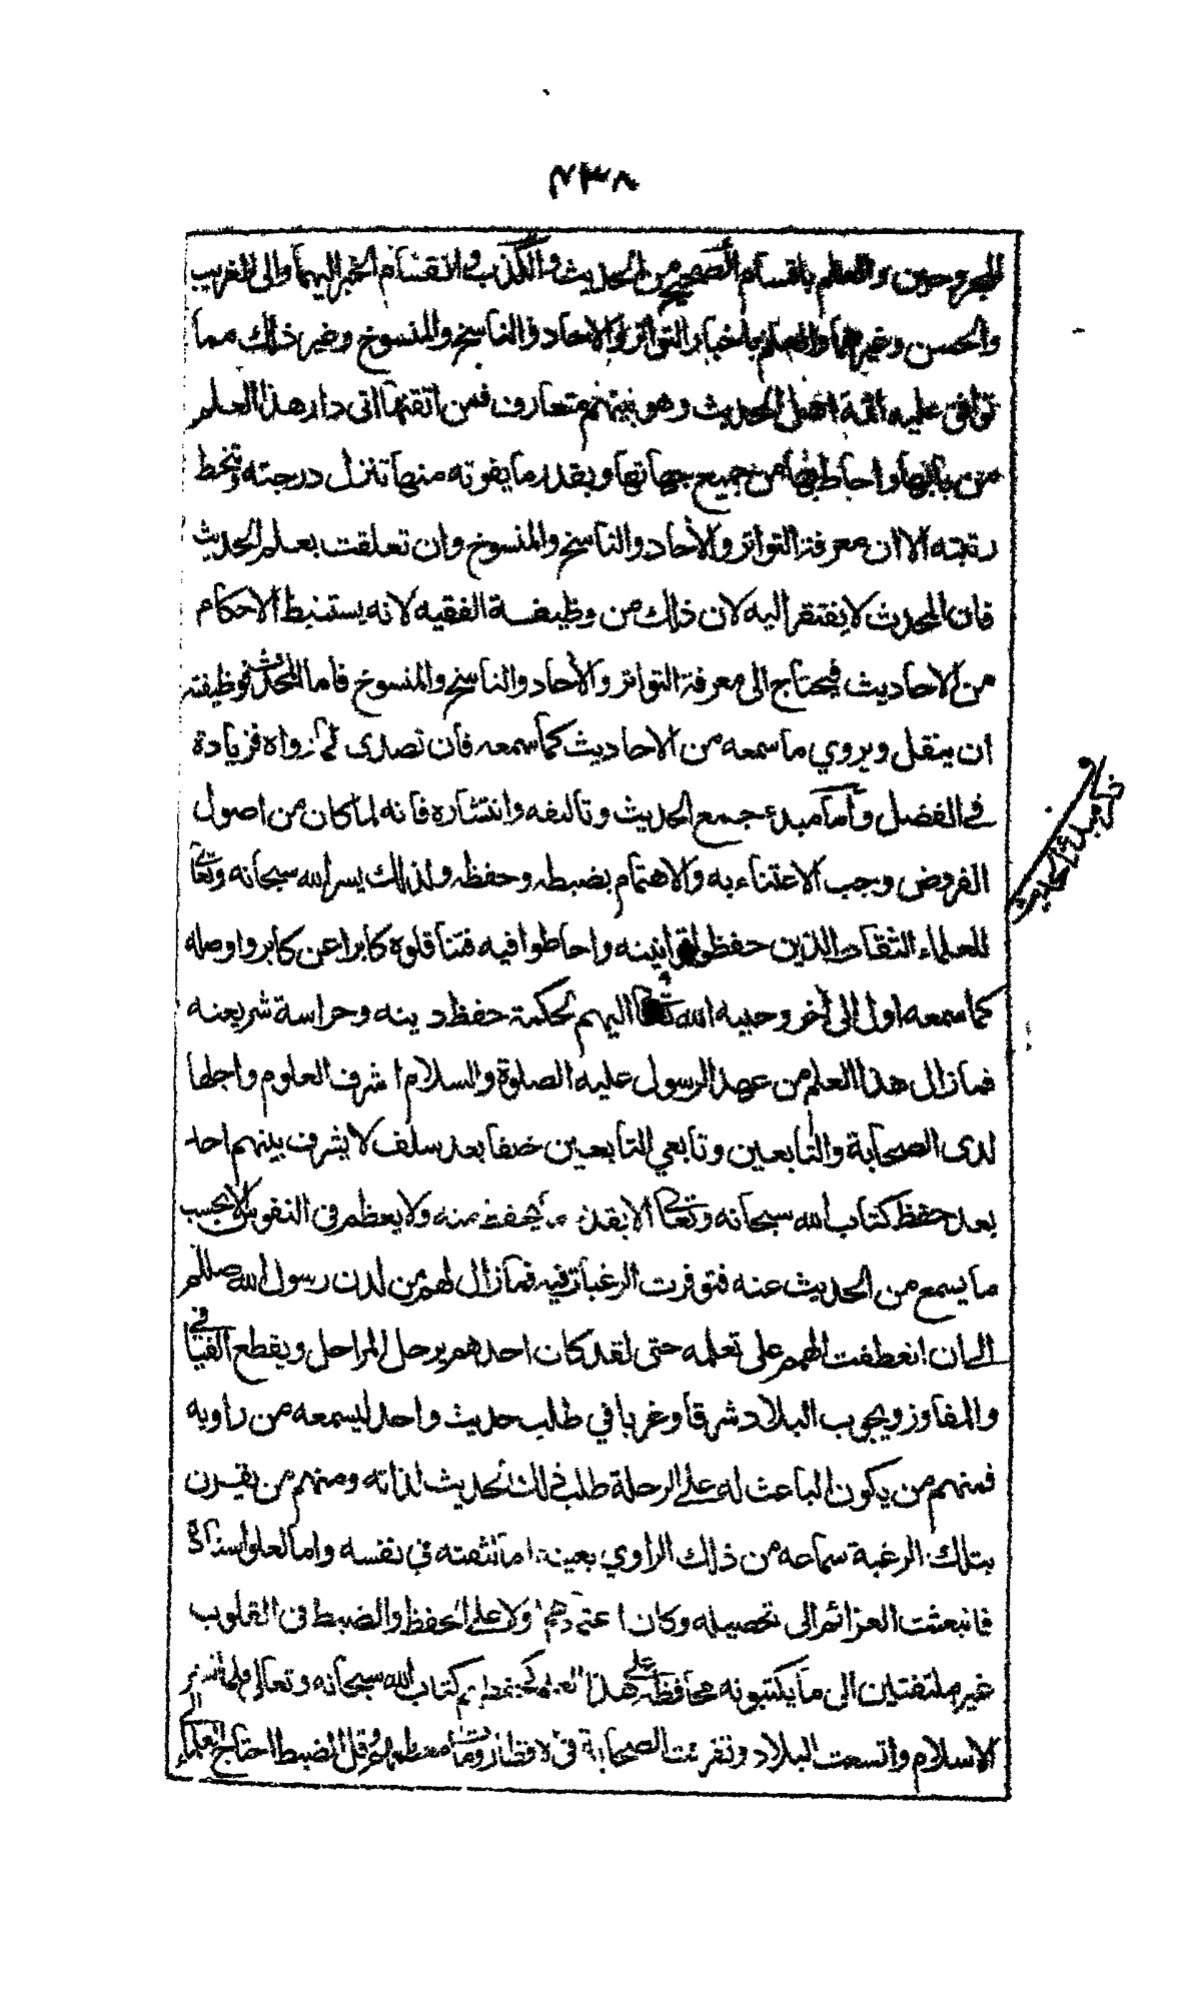 ٢٣٨
المجروحين والعلم باقسام الصحيح من الحديث والكذب وانقسام الخبر اليهما والى الغريب
والحسن وغيرهما والعلم باخبار التواتر والاحاد والناسخ والمنسوخ وغير ذلك مما
توافق عليه ائمة اهل الحديث وهو بينهم متعارف فمن اتقنها اتى دار هذا العلم
من بابها واحاط بها من جميع جهاتها وبقدر ما يفوته منها تنزل درجته وتنحط
رتبته الا ان معرفة التواتر والأحاد والناسخ والمنسوخ وان تعلقت بعلم الحديث
فان المحدث لا يفتقر اليه لان ذلك من وظيفة الفقيه لانه يستنبط الاحكام
من الاحاديث فيحتاج الى معرفة التواتر والأحاد والناسخ والمنسوخ فأما المحدث فوظيفته
ان ينقل ويروي ما سمعه من الاحاديث كما سمعه فان تصدى لما رواه فزيادة
في الفضل وأما مبدء جمع الحديث وتاليفه وانتشاره فانه لما كان من اصول
الفروض وجب الاعتناء به والاهتمام بضبطه وحفظه ولذلك يسر الله سبحانه وتعالى
للعلماء الثقات الذين حفظوا قوانينه واحاطوا فيه فتناقلوه كابرا عن كابر واوصله
كما سمعه اول الى أخر وحببه الله تعالى اليهم لحكمة حفظ دينه وحراسة شريعته
فما زال هذا العلم من عهد الرسول عليه الصلوة والسلام اشرف العلوم واجلها
لدى الصحابة والتابعين وتابعي التابعين خلفا بعد سلف لا يشرف بينهم احد
بعد حفظ كتاب الله سبحانه وتعالى الا بقدر ما يحفظ منه ولا يعظم في النفوس الا بحسب
ما يسمع من الحديث عنه فتوفرت الرغبات فيه فما زال لهم من لدن رسول الله صللم
الى ان انعطفت الهمم على تعلمه حتى لقد كان احدهم يرحل المراحل ويقطع الفيافي
والمفاوز ويجوب البلاد شرقا وغربا في طلب حديث واحد ليسمعه من راويه
فمنهم من يكون الباعث له على الرحلة طلب ذلك الحديث لذاته ومنهم من يقرن
بتلك الرغبة سماعه من ذلك الراوي بعينه اما لثقته في نفسه واما لعلو اسناده
فانبعثت العزائم الى تحصيله وكان اعتمادهم اولا على الحفظ والضبط في القلوب
غير ملتفتين الى ما يكتبونه محافظة على هذا العلم كحفظهم كتاب الله سبحانه وتعالى فلما انتشر
الاسلام واتسعت البلاد وتفرقت الصحابة في الاقطار ومات معظمهم وقل الضبط احتاج العلماء الى
مبدء جمع الحديث